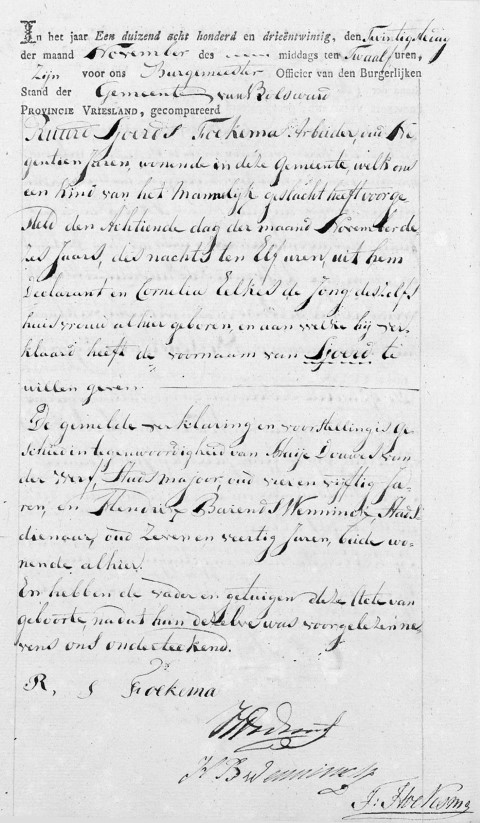 In het jaar Een duizend acht honderd en drieëntwintig, den Twintigsten dag
der maand November des middags ten Twaalf uren,
Zijn voor ons Burgemeester Officier van den Burgerlijken
Stand der Gemeente van Bolsward
PROVINCIE VRIESLAND, gecompareerd
Sjoerds Foekema Arbeider, oud Ne
gentien Jaren, wonende in deze Gemeente, welk ons
een kind van het Mannelijk geslacht heeft voorge
steld den Achtiende dag der maand November de
zes Jaars, des nachts ten Elf uren, uit hem
Declarant en Cornelia Eelkes de Jong deszelfs
huisvrouw alhier geboren, en aan welke hij ver
klaard heeft de voornaam van Sjoerd te
willen geven.
De gemelde verklaring en voorstelling is ge
schied in tegenwoordigheid van Douwes van
der Werf, Stads majoor, oud vier en vijftig Ja
ren, en Hendrik Barends Wenning, Stads
dienaar, oud Zeven en veertig Jaren, beide wo=
nende alhier.
En hebben de vader en getuigen deze Acte van
geboorte, na dat hun dezelve was voorgelezen ne
vens ons onderteekend.
R, S Foekema